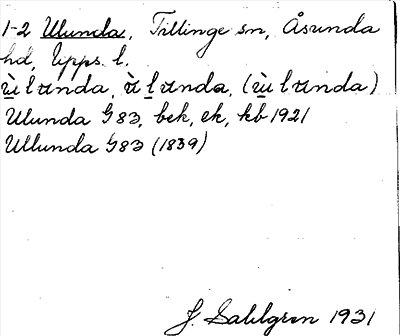 1-2 Ulunda, Tillinge sn, Åsunda
hd, Upps. l.
ù̱lʊnda, ùḻʊnda, (ù̱lʊnda)
Ulunda G83, bek, ek, kb 1921
Ullunda G83 (1839)
J. Sahlgren 1931